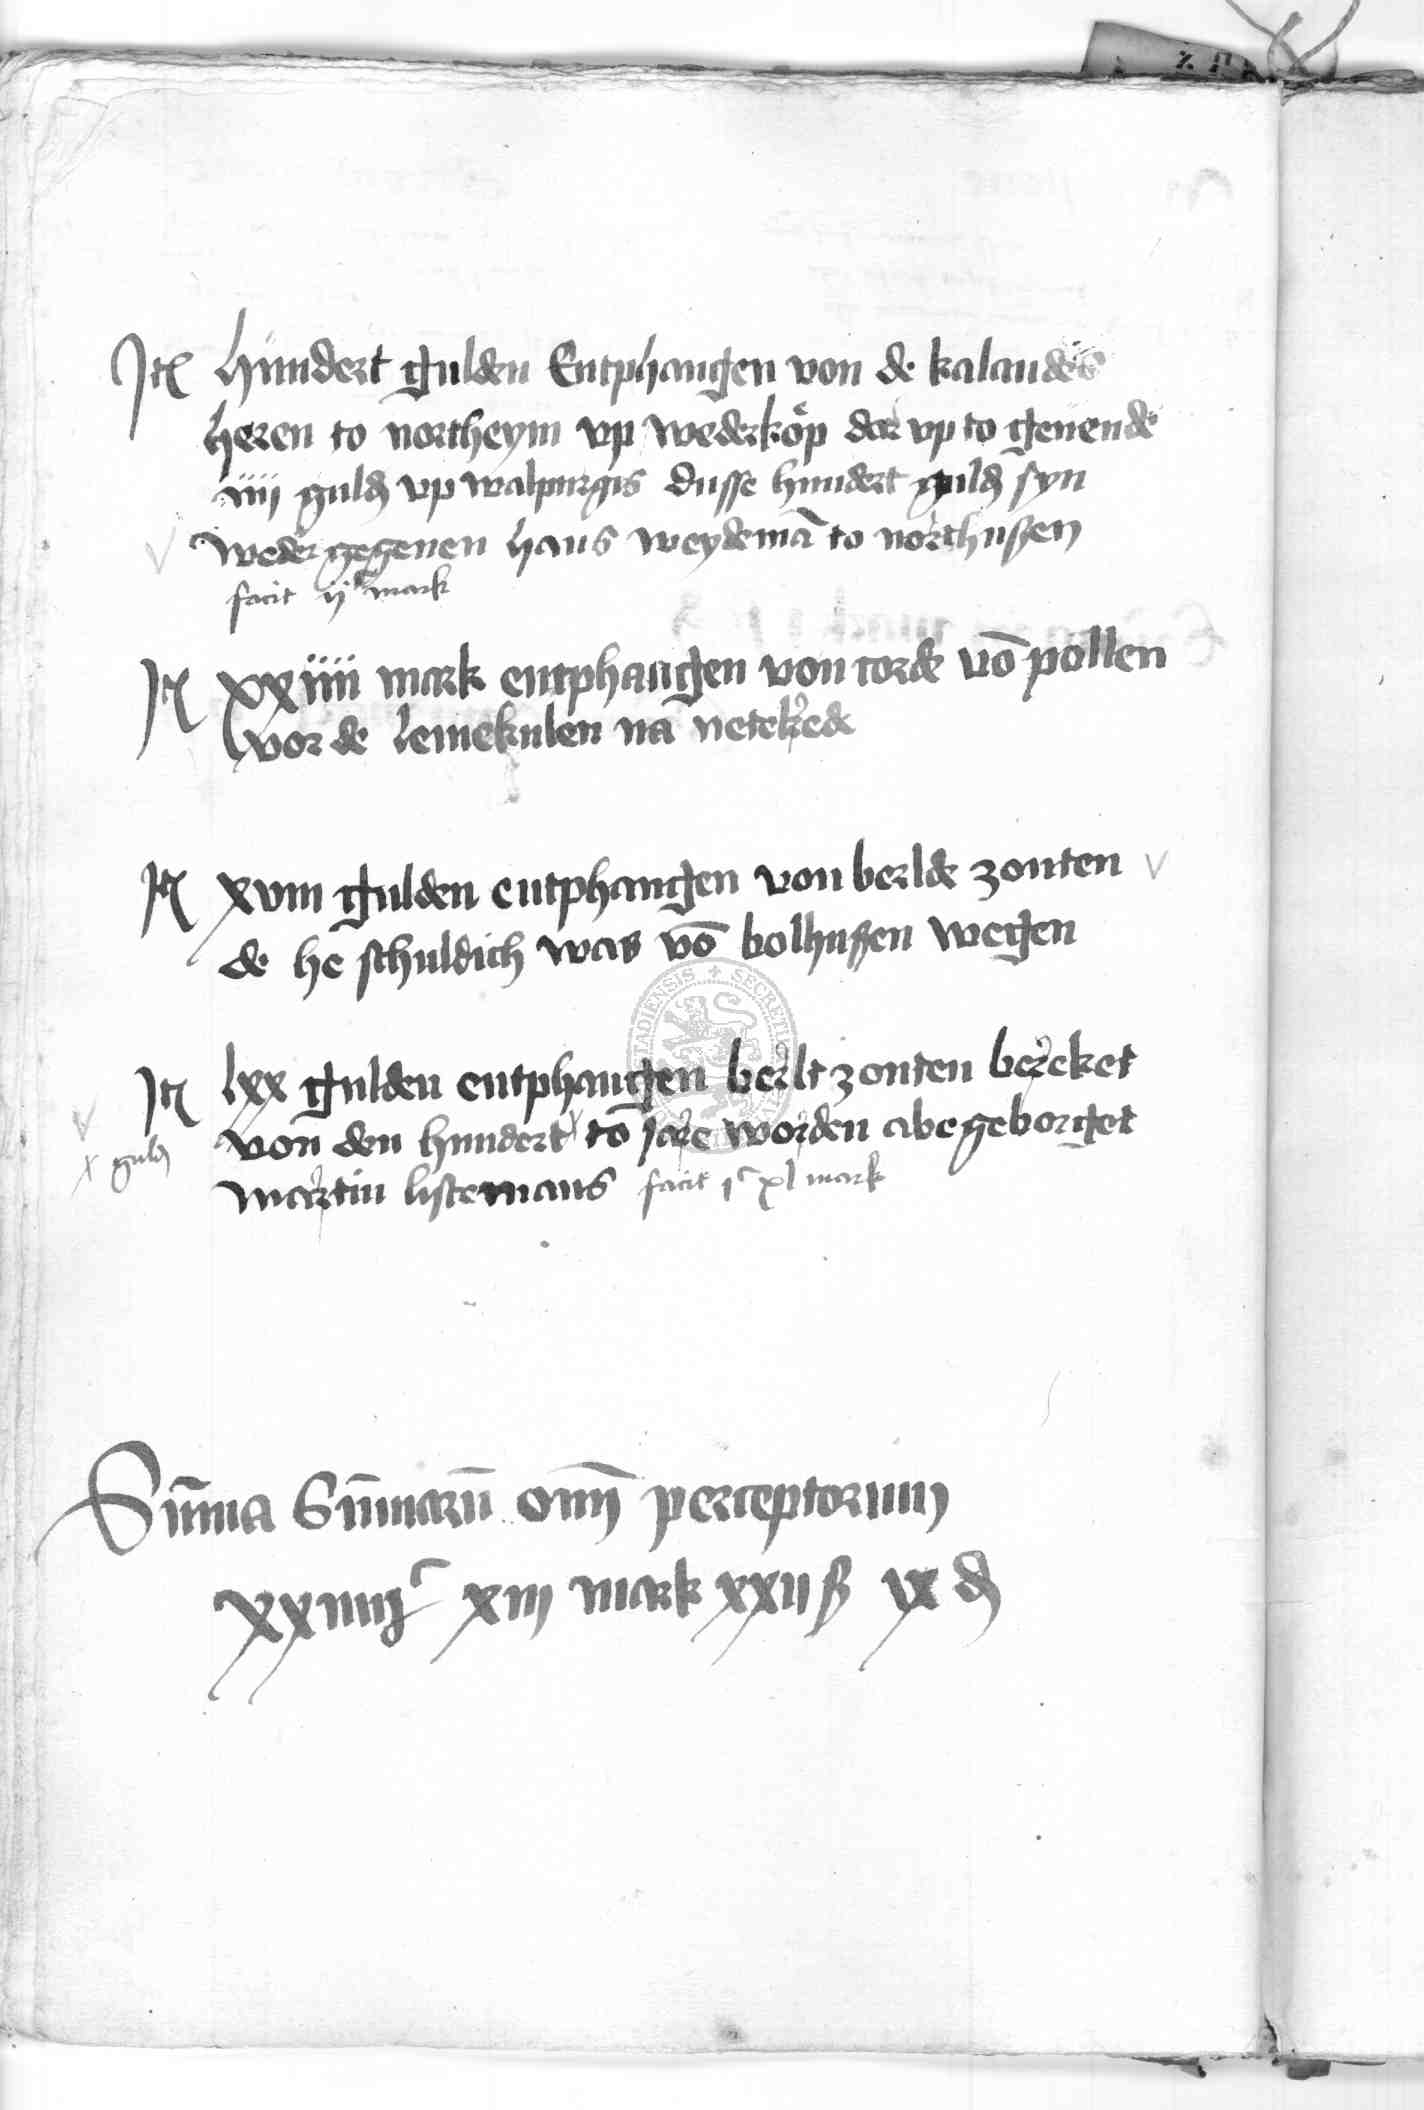 Itē hundert gulden Entphangen von de kalandes
heren to northeym vp wederkop̊ dar vp to geuende
iiii guld̄ vp walpurgis dusse hundert guld̄ syn
weder gegeuen hans weydemā to northußen
facit ijᶜ mark
Itē xxiiii mark entphangen von corde vō pollen
vor de lemekulen na netelrede
Itē xviii gulden entphangen von berlde zonten
de he schuldich was vō bolhußen wegen
Itē lxx gulden entphangen berlt zonten bereket
von den hundert to Jare worden abegeborget
x guld̄
martin listemans facit iᶜ xl mark
Sūma Sūmarū om̄ perceptorum
xxiiiiᶜ xiii mark xxii ß ix d̄
SECRETI
TADIENSIS